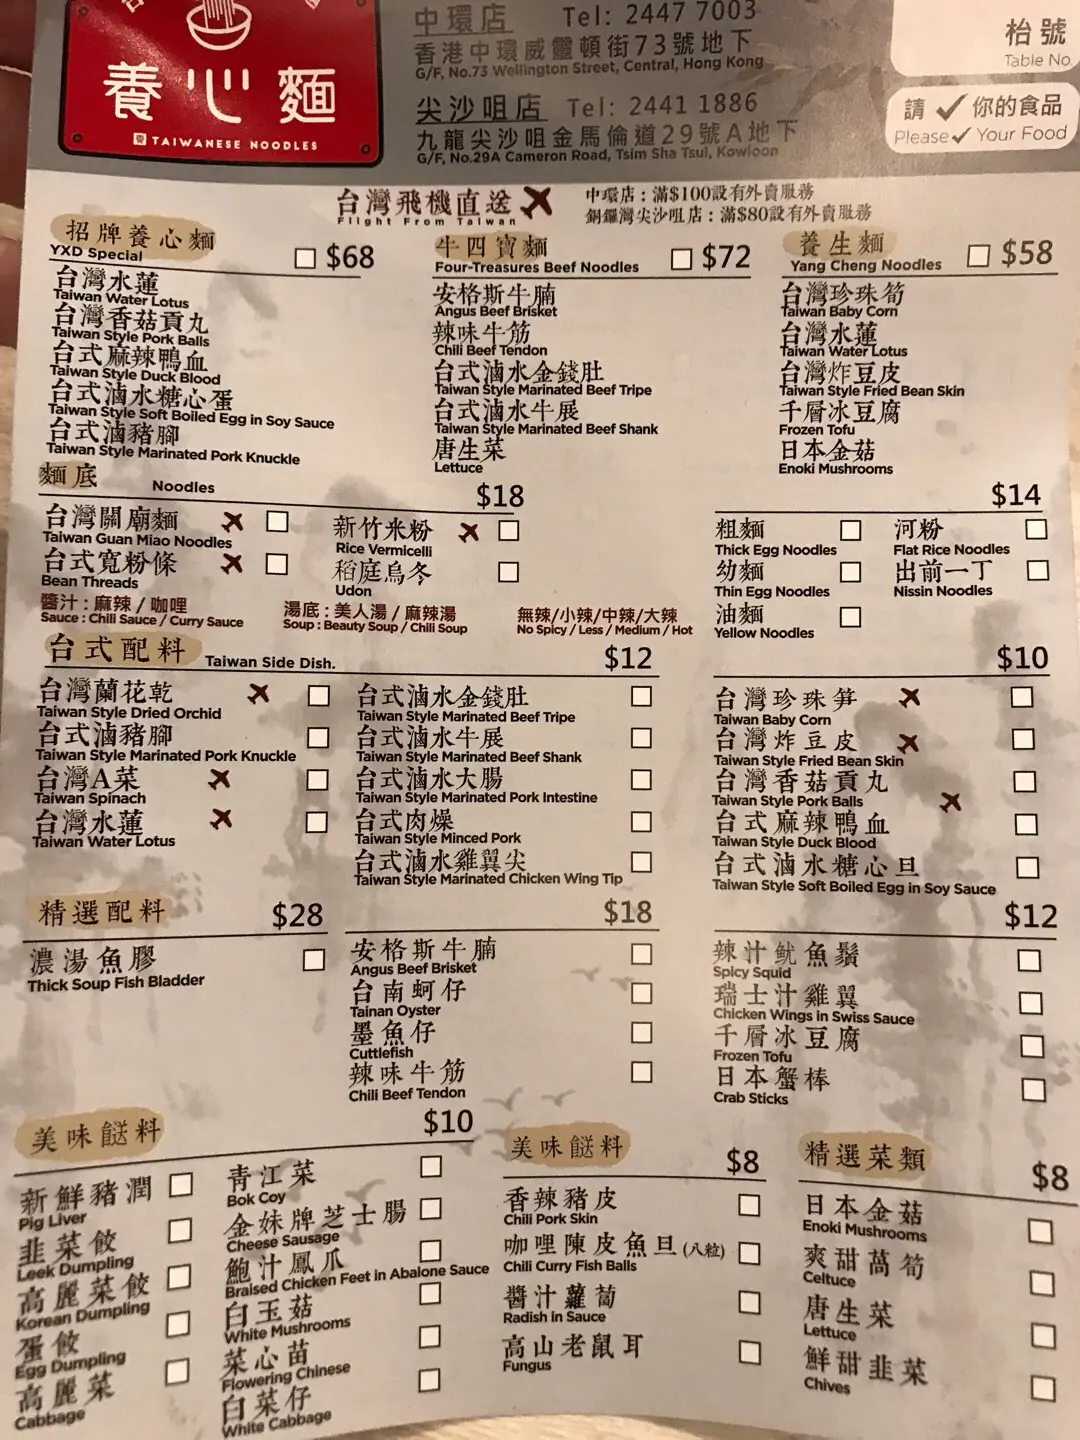 養心麵
TAIWANESE NOODLES
中環店 Tel: 2447 7003
香港中環威靈頓街73號地下
G/F, No.73 Wellington Street, Central, Hong Kong
尖沙咀店 Tel: 2441 1886
九龍尖沙咀金馬倫道29號A地下
G/F, No.29A Cameron Road, Tsim Sha Tsui, Kowloon
枱號
Table No.
請✓你的食品
Please✓Your Food
台灣飛機直送
Flight From Taiwan
中環店：滿$100設有外賣服務
銅鑼灣尖沙咀店：滿$80設有外賣服務
招牌養心麵 $68
YXD Special
台灣水蓮
Taiwan Water Lotus
台灣香菇貢丸
Taiwan Style Pork Balls
台式麻辣鴨血
Taiwan Style Duck Blood
台式滷水糖心蛋
Taiwan Style Soft Boiled Egg in Soy Sauce
台式滷豬腳
Taiwan Style Marinated Pork Knuckle
牛四寶麵 $72
Four-Treasures Beef Noodles
安格斯牛腩
Angus Beef Brisket
辣味牛筋
Chili Beef Tendon
台式滷水金錢肚
Taiwan Style Marinated Beef Tripe
台式滷水牛展
Taiwan Style Marinated Beef Shank
唐生菜
Lettuce
養生麵 $58
Yang Cheng Noodles
台灣珍珠筍
Taiwan Baby Corn
台灣水蓮
Taiwan Water Lotus
台灣炸豆皮
Taiwan Style Fried Bean Skin
千層冰豆腐
Frozen Tofu
日本金菇
Enoki Mushrooms
麵底 Noodles $18
台灣關廟麵
Taiwan Guan Miao Noodles
台式寬粉條
Bean Threads
新竹米粉
Rice Vermicelli
稻庭烏冬
Udon
$14
粗麵
Thick Egg Noodles
幼麵
Thin Egg Noodles
油麵
Yellow Noodles
河粉
Flat Rice Noodles
出前一丁
Nissin Noodles
醬汁：麻辣/咖哩
Sauce : Chili Sauce / Curry Sauce
湯底：美人湯/麻辣湯
Soup : Beauty Soup / Chili Soup
無辣/小辣/中辣/大辣
No Spicy / Less / Medium / Hot
台式配料 Taiwan Side Dish. $12
台灣蘭花乾
Taiwan Style Dried Orchid
台式滷豬腳
Taiwan Style Marinated Pork Knuckle
台灣A菜
Taiwan Spinach
台灣水蓮
Taiwan Water Lotus
台式滷水金錢肚
Taiwan Style Marinated Beef Tripe
台式滷水牛展
Taiwan Style Marinated Beef Shank
台式滷水大腸
Taiwan Style Marinated Pork Intestine
台式肉燥
Taiwan Style Minced Pork
台式滷水雞翼尖
Taiwan Style Marinated Chicken Wing Tip
$10
台灣珍珠笋
Taiwan Baby Corn
台灣炸豆皮
Taiwan Style Fried Bean Skin
台灣香菇貢丸
Taiwan Style Pork Balls
台式麻辣鴨血
Taiwan Style Duck Blood
台式滷水糖心旦
Taiwan Style Soft Boiled Egg in Soy Sauce
精選配料 $28
濃湯魚膠
Thick Soup Fish Bladder
$18
安格斯牛腩
Angus Beef Brisket
台南蚵仔
Tainan Oyster
墨魚仔
Cuttlefish
辣味牛筋
Chili Beef Tendon
$12
辣汁魷魚鬚
Spicy Squid
瑞士汁雞翼
Chicken Wings in Swiss Sauce
千層冰豆腐
Frozen Tofu
日本蟹棒
Crab Sticks
美味餸料 $10
新鮮豬潤
Pig Liver
韭菜餃
Leek Dumpling
高麗菜餃
Korean Dumpling
蛋餃
Egg Dumpling
高麗菜
Cabbage
青江菜
Bok Coy
金妹牌芝士腸
Cheese Sausage
鮑汁鳳爪
Braised Chicken Feet in Abalone Sauce
白玉菇
White Mushrooms
菜心苗
Flowering Chinese
白菜仔
White Cabbage
美味餸料 $8
香辣豬皮
Chili Pork Skin
咖哩陳皮魚旦(八粒)
Chili Curry Fish Balls
醬汁蘿蔔
Radish in Sauce
高山老鼠耳
Fungus
精選菜類 $8
日本金菇
Enoki Mushrooms
爽甜萵筍
Celtuce
唐生菜
Lettuce
鮮甜韭菜
Chives